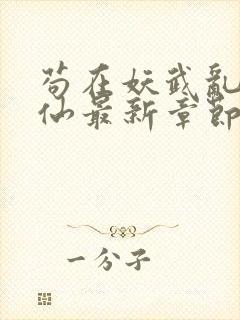 苟在妖武亂
仙最新章節
一分子